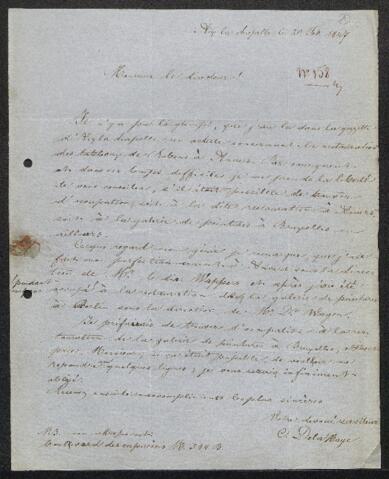 Aix la chapelle le 20 Feb. 1847
No 158
Monsieur le directeur!
Il n'y a pas longtemps, que j'ai lu dans la gazette
d'Aix la chapelle un article concernant la restauration
des tableaux de Rubens à Anvers. Par conséquent
et dans ces temps difficiles je me prends la liberté
de vous consulter, s'il était possible de trouver
d'occupation, soit à la dite restauration à Anvers,
soit à la galerie de peintures à Bruxelles en
Ce qui regard mon je remarque, que j'ai
fait ma perfection à Anvers sous la direc-
tion de Mr. le bar. Wappers et après j'ai été
pendant
occupé à la restauration de la galerie de peintures
à Berlin sous la direction de Mr. Dr. Wagen.
Je préférerais de trouver d'occupation à la res-
tauration de la galerie de peintures à Bruxelles,
Monsieur, de vouloir me
répondre quelques lignes, je vous serais infiniment
obligé.
le plus sincère
Votre dévoué serviteur
C. Delahaye
N.B. mon adresse
Boulevard des capucins N. 344